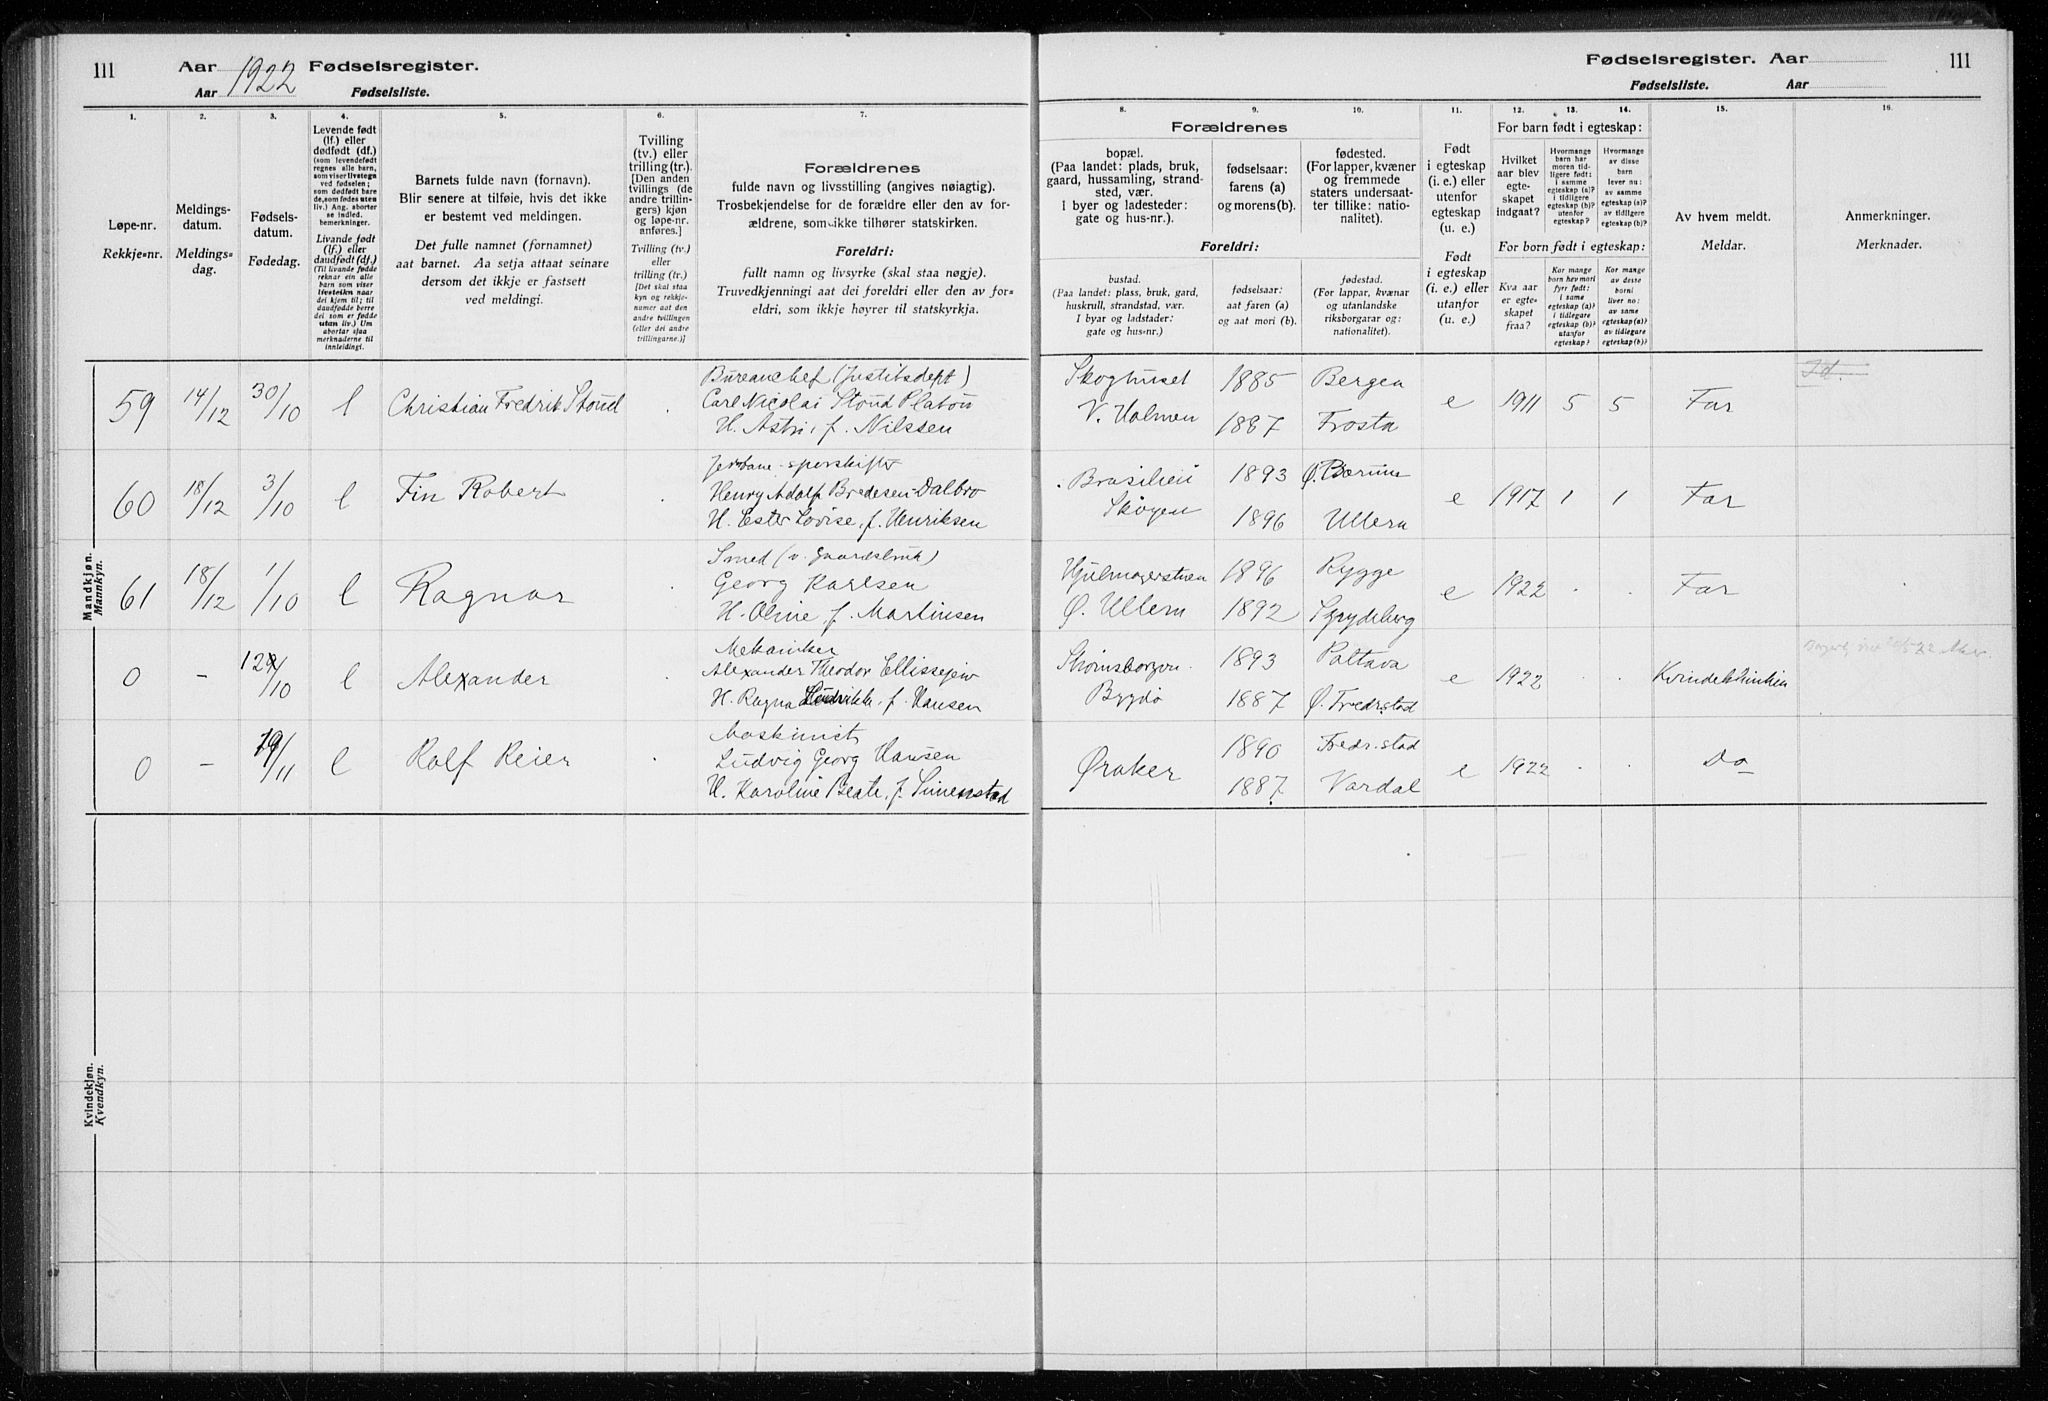 111 Aar 1922 Fødselsregister.
Aar Fødselsliste.
Fødselsregister. Aar 111
Fødselsliste. Aar
1. 2. 3. 4. 5. 6. 7. 8. 9. 10. 11. 12. 13. 14. 15. 16.
Løpe-nr.
Rekkje-nr.
Meldings-
datum.
Meldings-
dag.
Fødsels-
datum.
Fødedag.
Levende født
(lf.) eller
dødfødt (df.)
(som levendefødt
regnes alle barn,
som viser livstegn
ved fødselen;
som dødfødt bare
de, som fødes uten
liv.) Ang. aborter
se indled.
bemerkninger.
Livande født
(lf.) eller
daudfødt (df.)
(Til livande fødde
reknar ein alle
barn som viser
livsteikn naar
dei kjem til; til
daudfødde berre
dei som er fødde
utan liv.) Um
abortar sjaa
merknaderne til
innleidingi.
Barnets fulde navn (fornavn).
Blir senere at tilføie, hvis det ikke
er bestemt ved meldingen.
Det fulle namnet (fornamnet)
aat barnet. Aa setja attaat seinare
dersom det ikkje er fastsett
ved meldingi.
Tvilling
(tv.) eller
trilling (tr.).
[Den anden
tvillings (de
andre trillin-
gers) kjøn
og løpe-nr.
anføres.]
Tvilling (tv.)
eller
trilling (tr.)
[Det skal staa
kyn og rekkje-
numer aat den
andre tvillingen
(eller dei andre
trillingarne.)]
Forældrenes
fulde navn og livsstilling (angives nøiagtig).
Trosbekjendelse for de forældre eller den av for-
ældrene, som ikke tilhører statskirken.
Foreldri:
fullt namn og livsyrke (skal staa nøgje).
Truvedkjenningi aat dei foreldri eller den av for-
eldri, som ikkje høyrer til statskyrkja.
Forældrenes
bopæl.
(Paa landet: plads, bruk,
gaard, hussamling, strand-
sted, vær.
I byer og ladesteder:
gate og hus-nr.)
fødselsaar:
farens (a)
og morens (b).
fødested.
(For lapper, kvæner
og fremmede
staters undersaat-
ter tillike: natio-
nalitet).
Foreldri:
bustad.
(Paa landet: plass, bruk, gard,
huskrull, strandstad, vær.
I byar og ladstader:
gate og hus-nr.)
fødselsaar:
aat faren (a)
og aat mori (b).
fødestad.
(For lappar, kvænar
og utanlandske
riksborgarar og:
nationalitet).
Født
i egteskap
(i. e.) eller
utenfor
egteskap
(u. e.)
Født
i egteskap
(i. e.) eller
utanfor
egteskap
(u. e.)
For barn født i egteskap:
Hvilket
aar blev
egte-
skapet
indgaat?
Hvormange
barn har
moren tid-
ligere født:
i samme
egteskap (a)?
i tidligere
egteskap (b)?
utenfor
egteskap?
Hvormange
av disse
barn
lever nu:
av samme
egteskap (a)?
av tidligere
egteskap (b)?
For born født i egteskap:
Kva aar
er egte-
skapet
fraa?
Kor mange
born hev mori
fyrr født:
i same
egteskap (a)?
i tidlegare
egteskap (b)?
utanfor
egteskap?
Kor mange
av desse
borni
liver no:
av same
egteskap (a)?
av tidlegare
egteskap (b)?
Av hvem meldt.
Meldar.
Anmerkninger.
Merknader.
Mandkjøn.
Mannkyn.
Bureauchef (Justitsdept) Skoghuset 1885 Bergen
59 14/12 30/10 l Christian Fredrik Stoud Carl Nicolai Stoud Platou V. Holmen e 1911 5 5 Far
H. Astri, f. Nilssen 1887 Frosta
Jernbane-sporskifter Brasilien 1893 Ø. Bærum
60 18/12 3/10 l Fin Robert Henry Adolf Bredesen-Dalbro Skøyen e 1917 1 1 Far
H. Ester Lovise, f. Henriksen 1896 Ullern
Smed (v. gaardsbruk) 1896 Rygge
61 18/12 1/10 l Ragnar Georg Karlsen e 1922 Far
H. Oline f. Martinsen Ø. Ullern 1892 Spydeberg
Mekaniker 1893 Poltava
0 - /10 l Alexander Alexander Theodor e 1922 Kvindeklinikken
H. Ragna f. Hansen Bygdø 1887 Ø. Fredr.stad
Maskinist 1890 Fredr.stad
0 - 19/11 l Rolf Reier Ludvig Georg Hansen Øraker e 1922 Do
H. Karoline Beate, f. Simenstad 1887 Vardal
Kvindekjøn.
Kvendkyn.